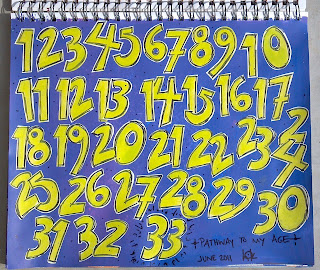 12345678910
11 12 13 14 15 16 17
18 19 20 21 22 23 24
25 26 27 28 29 30
31 32 33
+PATHWAY TO MY AGE+
JUNE 2011